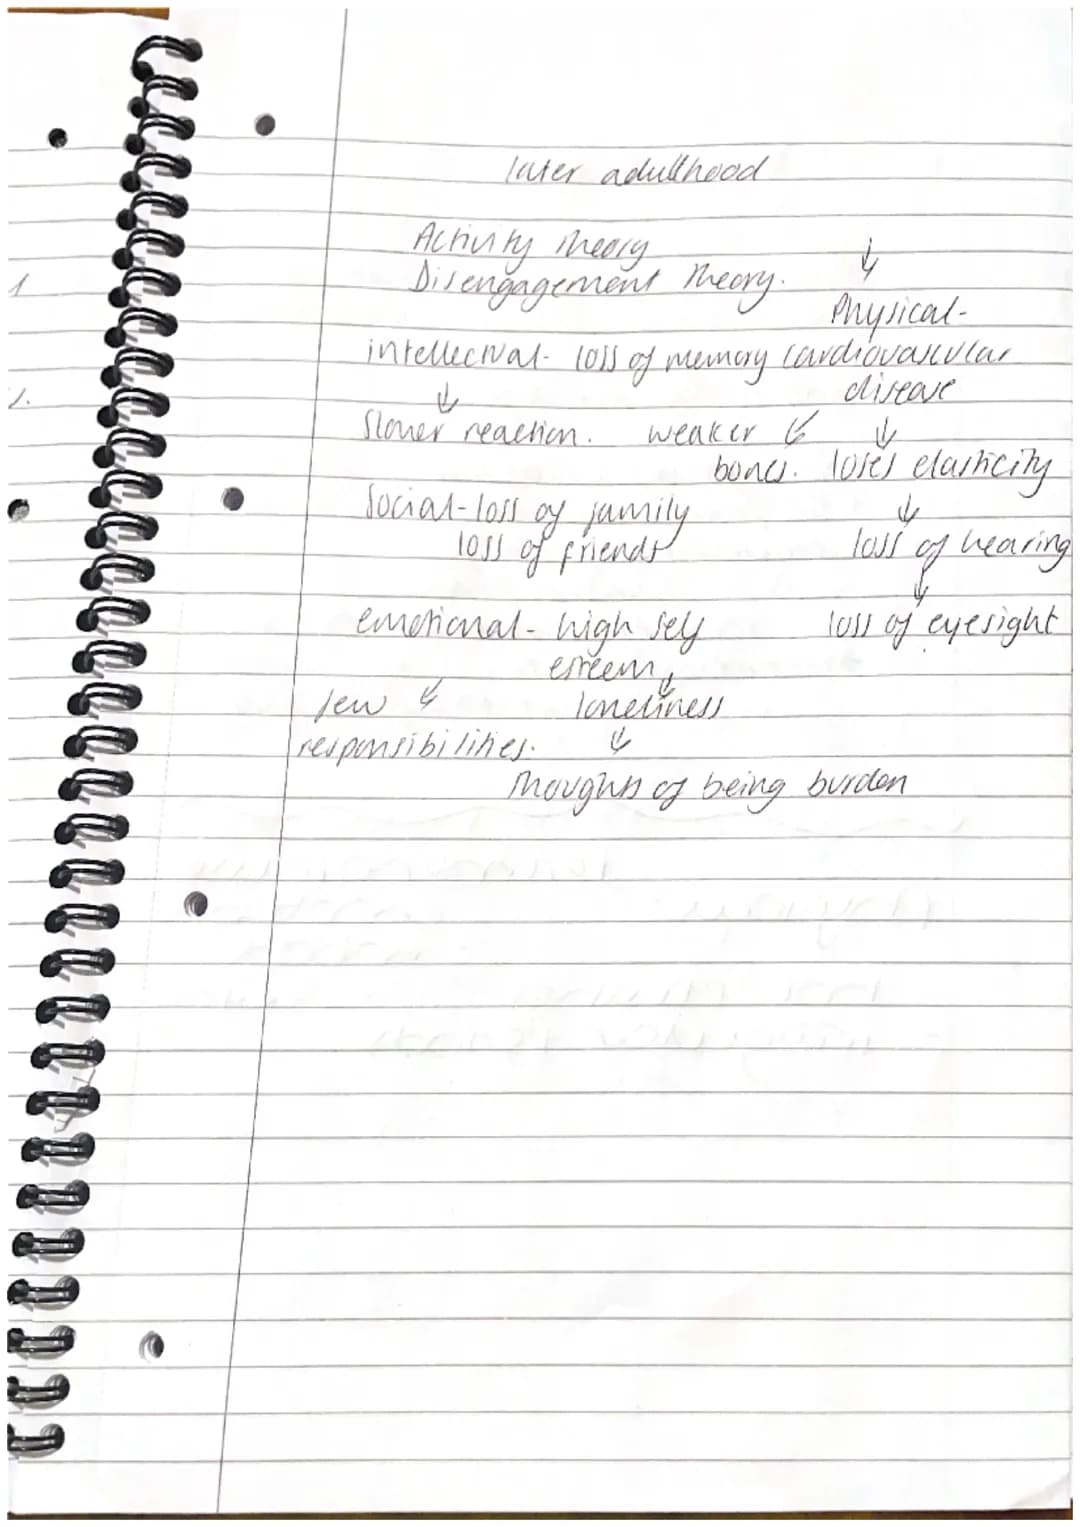 later adulthood
Activity theory
Disengagement Theory.
↓
Physical-
intellectual- loss of memory cardiovascular
disease
↓
Slower reaction. weaker ↙ ↓
bones. loses elasticity
Social-loss of family ↓
loss of friends loss of hearing
↓
emotional- high self loss of eyesight
esteem ↓
few ↙ loneliness
responsibilities. ↓
Thoughts of being burden